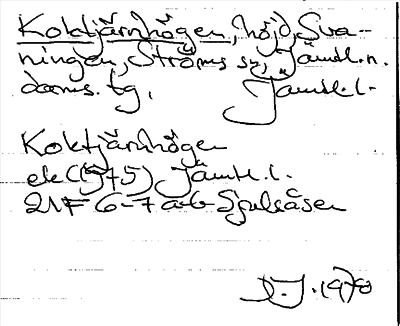 Koktjärnhögen, höjd, Sva-
ningen, Ströms sn, Jämtl. n.
doms. tg, Jämtl. l.
Koktjärnhögen
ek (1975) Jämtl. l.
21F 6-7 a-b Sjulsåsen
D.J. 1978